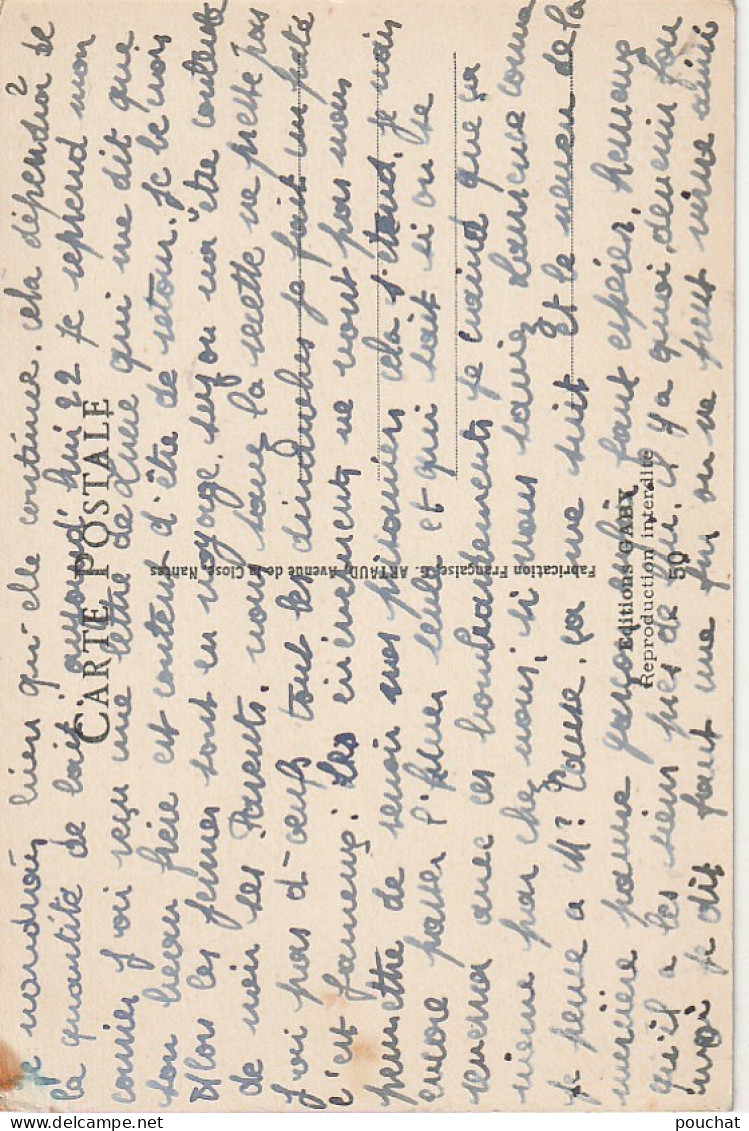 je voudrais bien qu'elle continue. cela dépendra de
la quantité de lait. aujourd'hui 22 je reprend mon
courrier j'ai reçu une lettre de Lucie qui me dit que
son beau frère est content d'être de retour. je le vois
Alors les fermes sont en voyage. Suzon va être contente
de voir ses Parents. nous sans la ne presse pas
j'ai pas d'œufs tout les dimanches je fait un
c'est fameux. Les événements ne vont pas nous
permettre de revoir nos prisonniers cela s'étend, je vais
encore passer l'hiver seule et qui sait si on se
reverra avec ces bombardements je craind que ça
vienne par chez nous, si vous saviez Laurence comme
je pense a Mr ça me suit Et le neveu de la
mercière pauvre garçon enfin faut espérer. heureux
qu'il a les siens près de lui. il y a de quoi devenir fou
moi je dit faut une fin on ne peut vivre ainsi
CARTE POSTALE
Fabrication Française, G. ARTAUD, Avenue de la Close, Nantes
Editions GABY
Reproduction interdite
50
pouchat